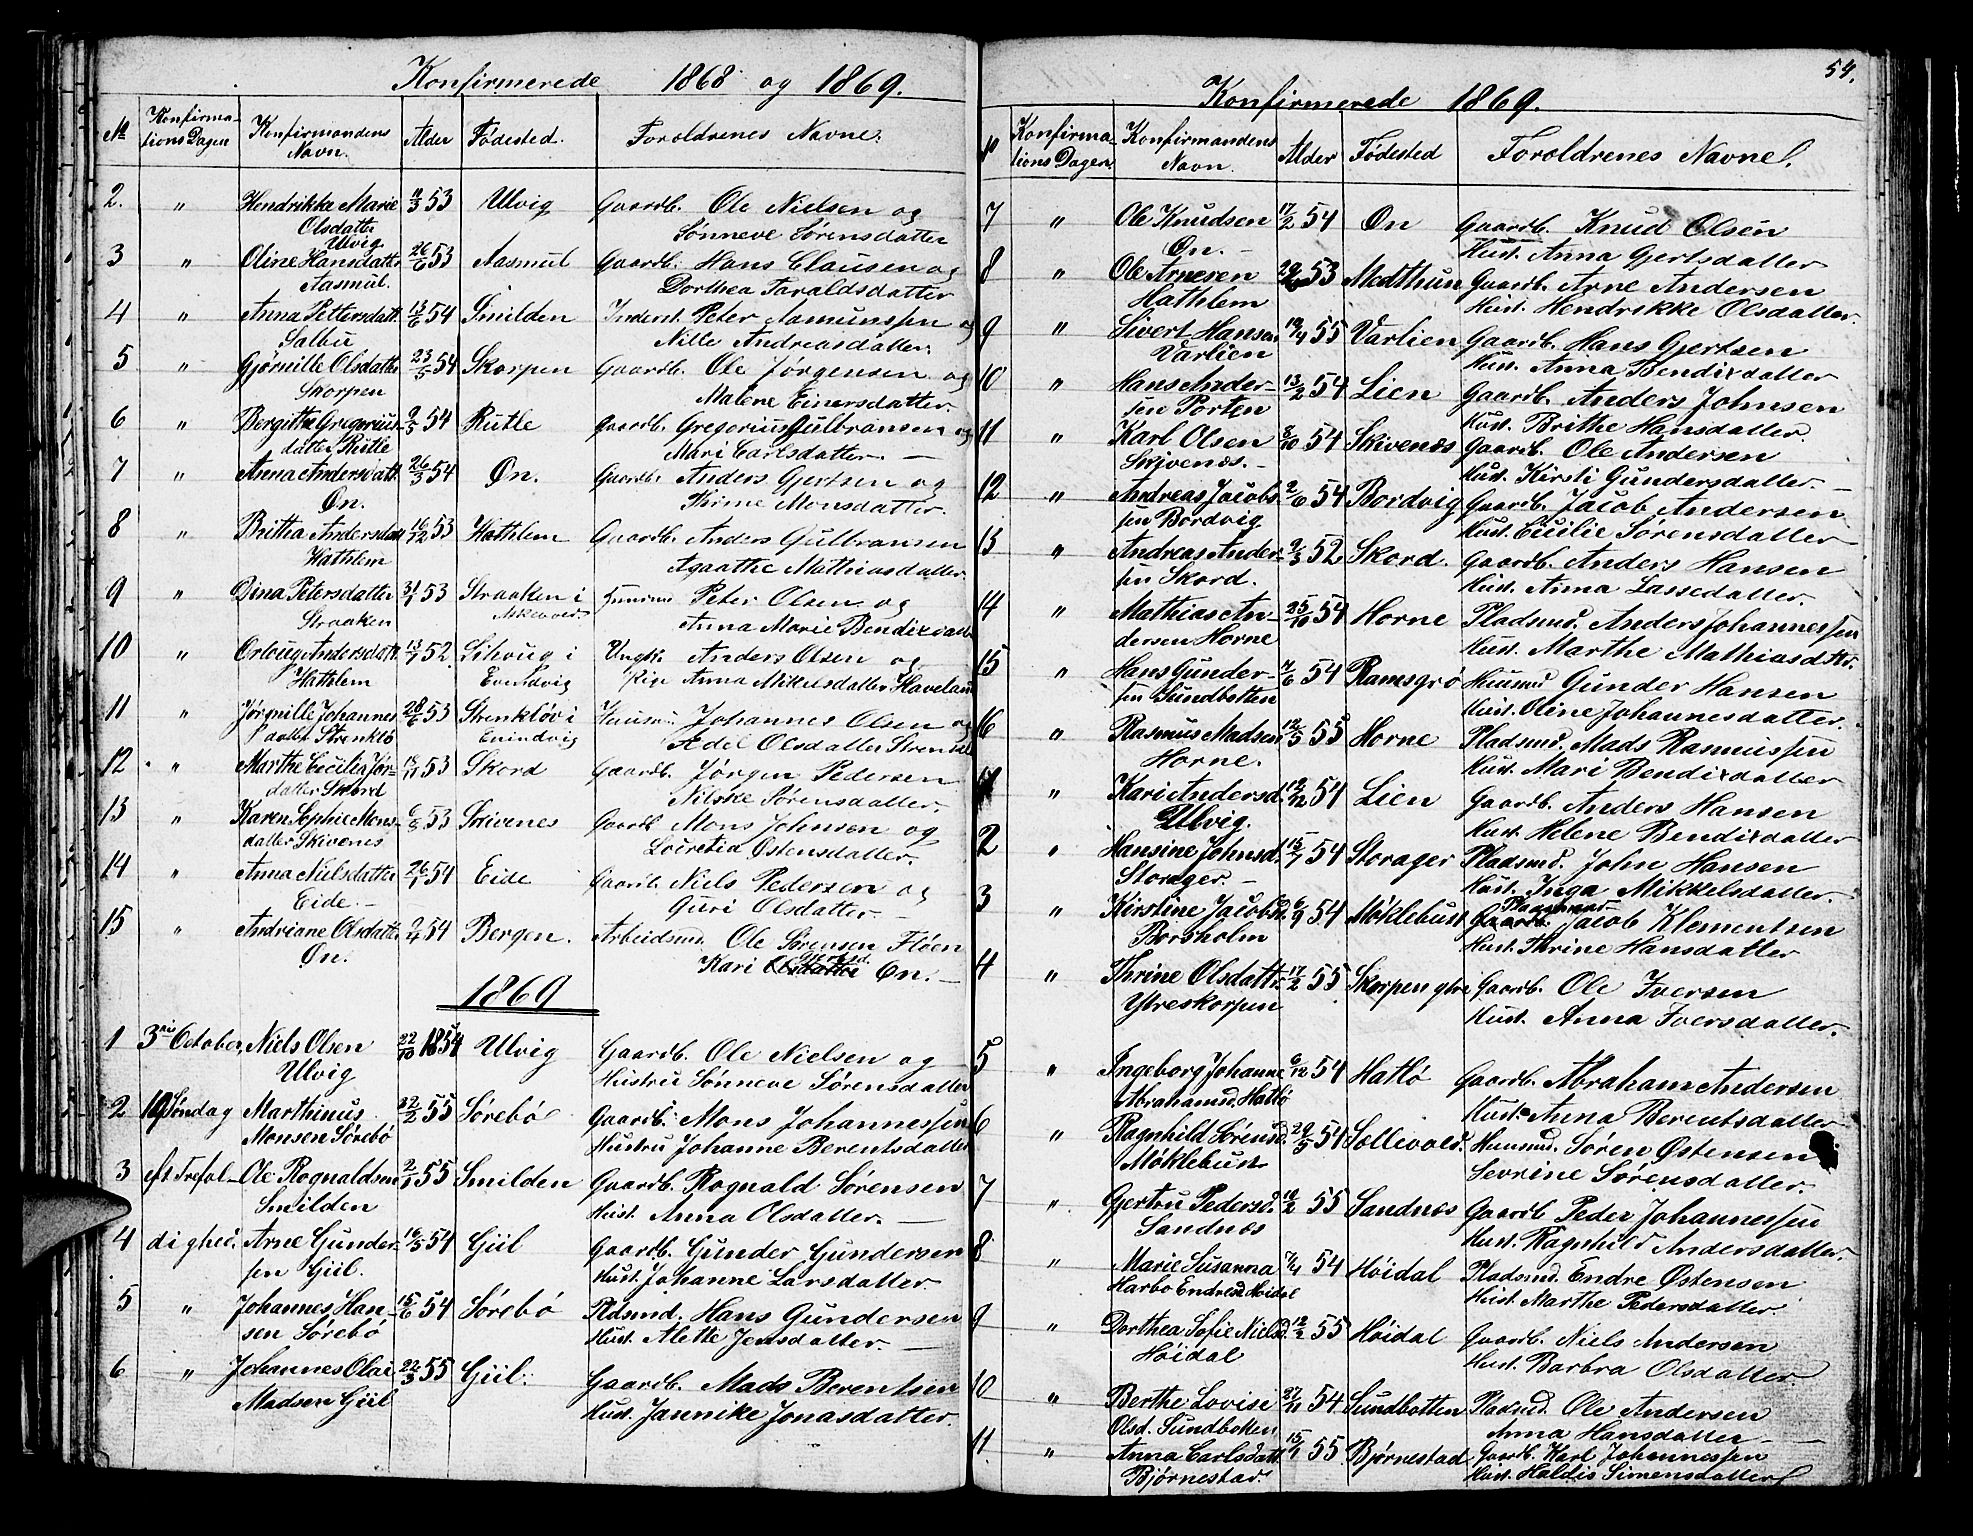 Konfirmerede 1868 og 1869.
№ Konfirma-tions Dagen Konfirmandens Navn. Alder Fødested. Foroldrenes Navne.
2. " Hendrikke Marie 53 Ulvig Gaardb. Ole Nielsen og
Olsdatter Ulvig Sønneve Sørensdatter
3 " Oline Hansdattr 26/6 53 Aasmul Gaardb. Hans Clausen og
Aasmul. Dorthea Taraldsdatter
4 " Anna Pettersdatt. 13/6 54 Smilden Inderst. Peter Aamunssen og
Salbu Nille Andreasdatter.
5 " Gjørnille Olsdattr 23/5 54 Skorpen Gaardb. Ole Jørgensen og
Skorpen Malene Einersdatter.
6 " Bergitha Gregorius 54 Rutle Gaardb. Gregorius Gulbransen og
datter Rutle Mari Carlsdatter. —
7 " Anna Andersdatt. 26/3 54 Øn. Gaardb. Anders Gjertsen og
Øn. Thrine Monsdatter.
8 " Britha Andersdatt 16/12 53 Hathlem Gaardb. Anders Gulbransen
Hathlem Agaathe Mathiasdatter
9 " Dina Petersdatter 53 Straaken i Peter Olsen og
Straaken Askevold Anna Marie Bendixdatt
10 " Andersdatt. 52 i Ungk. Anders Olsen og
Hathlem Evendvig Pige Anna Mikelsdatter Haveland
11 " Jørgnille Johannes 28/6 53 Strenkløv i Huusm. Johannes Olsen og
datter Strenklø Enindvig Adel Olsdatter
12 " Marthe Cecilia Jør- 53 Skord Gaardb. Jørgen Pedersen
datter Skord Nilske Sørensdatter.
13 " Karen Sophie Mons- 53 Skivenes Gaardb Mons Johnsen og
datter Skivenes Loiretia Ostensdatter.
14 " Anna Nielsdatter 26/1 54 Eide Gaardb. Niels Pedersen og
Eide. — Guri Olsdatter. —
15 " Andriane Olsdatter 2/4 54 Bergen. Arbeidsmd. Ole Sørensen Fløen
Øn. Kari Øn. —
1869
1 3die October Niels Olsen 22/10 1854 Ulvig Gaardb. Ole Nielsen og
Ulvig Hustru Sønneve Sørensdatter
2 19 Søndag Marthinus 22/2 55 Sørebø Gaardb. Mons Johannessen
Monsen Sørebø Hustru Johanne Berentsdatter
3 eft Trefol- Ole Rognaldsen 2/1 55 Smilden Gaardb. Rognald Sørensen
Smilden Hust. Anna Olsdatter. —
4 dighei. Arne Gunder- 16/5 54 Giil Gaardb. Gunder Gundersen
sen Giil. Hust. Johanne Larsdatter.
5 " Johannes Han- 15/6 54 Sørebø Pladsmd. Hans Gundersen
sen Sørebø Hust. Alette Jensdatter. —
6 " Johannes Olai 22/3 55 Giil. Gaardb. Mads Berentsen
Madsen Giil Hust. Jannike Jonasdatter.
54.
Konfirmerede 1869.
№ Konfirma-tions Dagen. Konfirmandens Navn. Alder Fødested Foroldrenes Navne.
7 " Ole Knudsen 17/2 54 Øn Gaardb. Knud Olsen
Øn. — Hust. Anna Gjertsdatter
8 " Ole Arnesen 53 Modthun Gaardb. Arne Andersen
Hathlem Hust. Hendrikke Olsdatter.
9 " Sivert Hansen 19/4 55 Varlien Gaardb. Hans Gjertsen
Varlien Hust. Anna Bendixdatter
10 " Hans Ander- 13/2 54 Lien Gaardb. Anders Johnsen
sen Porten Hust. Brithe Hansdatter.
11 " Karl Olsen 8/10 54 Skivenæs Gaardb. Ole Andersen
Skivenæs. — Hust. Kirsti Gundersdatter. —
12 " Andreas Jacobs 2/6 54 Bordvig Gaardb. Jacob Andersen
sen Bordvig Hust. Cecilie Sørensdatter —
13 " Andreas Ander- 2/3 52 Skord. Gaardb. Anders Hansen
sen Skord. Hust. Anna Lassedatter.
14 " Mathias An- 25/10 54 Horne Pladsmd. Anders Johannessen
dersen Horne Hust. Marthe Mathiasdttr.
15 " Hans Gunder- 54 Ramsgrø Huusmd Gunder Hansen
sen Sundbotten Hust. Oline Johannesdatter.
16 " Rasmus Madsen 12/5 55 Horne Pladsmd. Mads Rasmussen
Horne. Hust. Mari Bendixdatter
1 " Kari Andersd. 12/12 54 Lien Gaardb. Anders Hansen
Ulvig. Hust. Helene Bendixdatter
2 " Hansine Johnsd. 15/7 54 Storager Pladsmd. John Hansen
Storager. — Hust. Inga Mikkelsdatter.
3 " Kirstine Jacobsd. 6/9 54 Møklebust Pladsmand Jacob Klementsen
Borsholm Hust. Thrine Hansdatter
4 " Thrine Olsdattr. 17/2 55 Skorpen ytre Gaardb. Ole Iversen
Ytreskorpen Hust. Anna Iversdatter.
5 " Ingeborg Johanne 6/12 54 Hatlø Gaardb. Abraham Andersen
Abrahamsd. Hatlø Hust. Anna Berentsdatter
6 " Ragnhild Sørensd. 29/5 54 Sollevold. Huusmd. Søren Østensen
Møklebust Sevrine Sørensdatter.
7 " Gjertru Pedersd. 55 Sandnæs Gaardb Peder Johannessen
Sandnæs Hust. Ragnhild Andersdatter.
8 " Marie Susanna 54 Høidal Pladsmd. Endre Østensen
Harbo Endresd Høidal Hust. Marthe Pedersdatter.
9 " Dorthea Sofie Nielsd 12/2 55 Høidal Gaardb. Niels Andersen
Høidal Hust. Barbra Olsdatter.
10 " Berthe Lovise 27/11 54 Sundbotten Pladsmd. Ole Andersen
Olsd. Sundbotten Anna Hansdatter —
11. " Anna Carlsdatt 15/1 55 Bjørnestad Gaardb. Karl Johannessen
Bjørnestad. Hust. Haldis Simensdatter